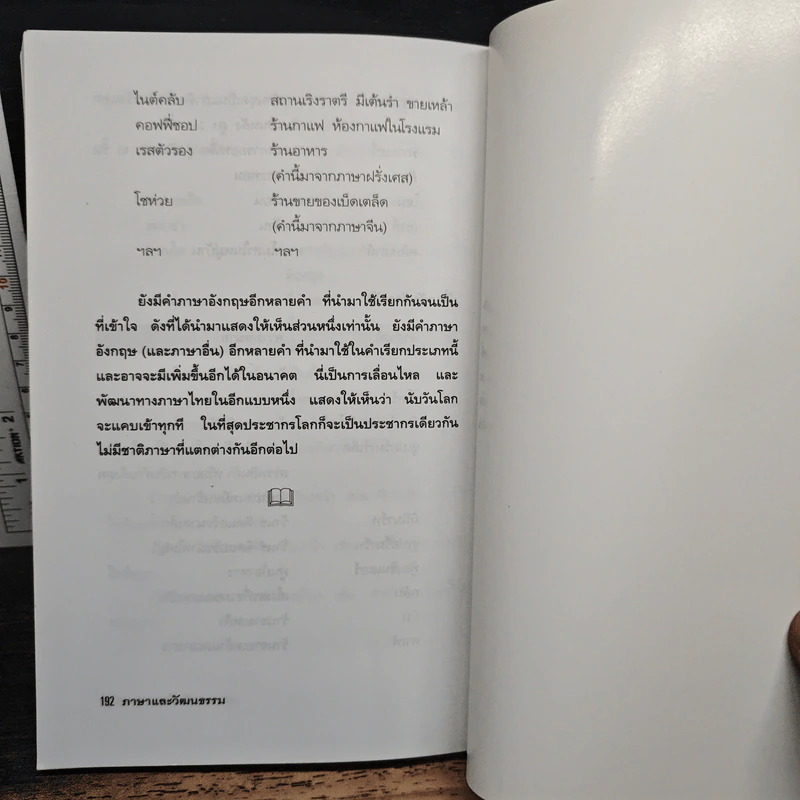 ไนต์คลับ สถานเริงราตรี มีเต้นรำ ขายเหล้า
คอฟฟี่ชอป ร้านกาแฟ ห้องกาแฟในโรงแรม
เรสตัวรอง ร้านอาหาร
(คำนี้มาจากภาษาฝรั่งเศส)
โชห่วย ร้านขายของเบ็ดเตล็ด
(คำนี้มาจากภาษาจีน)
ฯลฯ ฯลฯ
ยังมีคำภาษาอังกฤษอีกหลายคำ ที่นำมาใช้เรียกกันจนเป็น
ที่เข้าใจ ดังที่ได้นำมาแสดงให้เห็นส่วนหนึ่งเท่านั้น ยังมีคำภาษา
อังกฤษ (และภาษาอื่น) อีกหลายคำ ที่นำมาใช้ในคำเรียกประเภทนี้
และอาจจะมีเพิ่มขึ้นอีกได้ในอนาคต นี่เป็นการเลื่อนไหล และ
พัฒนาทางภาษาไทยในอีกแบบหนึ่ง แสดงให้เห็นว่า นับวันโลก
จะแคบเข้าทุกที ในที่สุดประชากรโลกก็จะเป็นประชากรเดียวกัน
ไม่มีชาติภาษาที่แตกต่างกันอีกต่อไป
192 ภาษาและวัฒนธรรม
10
9
2
1